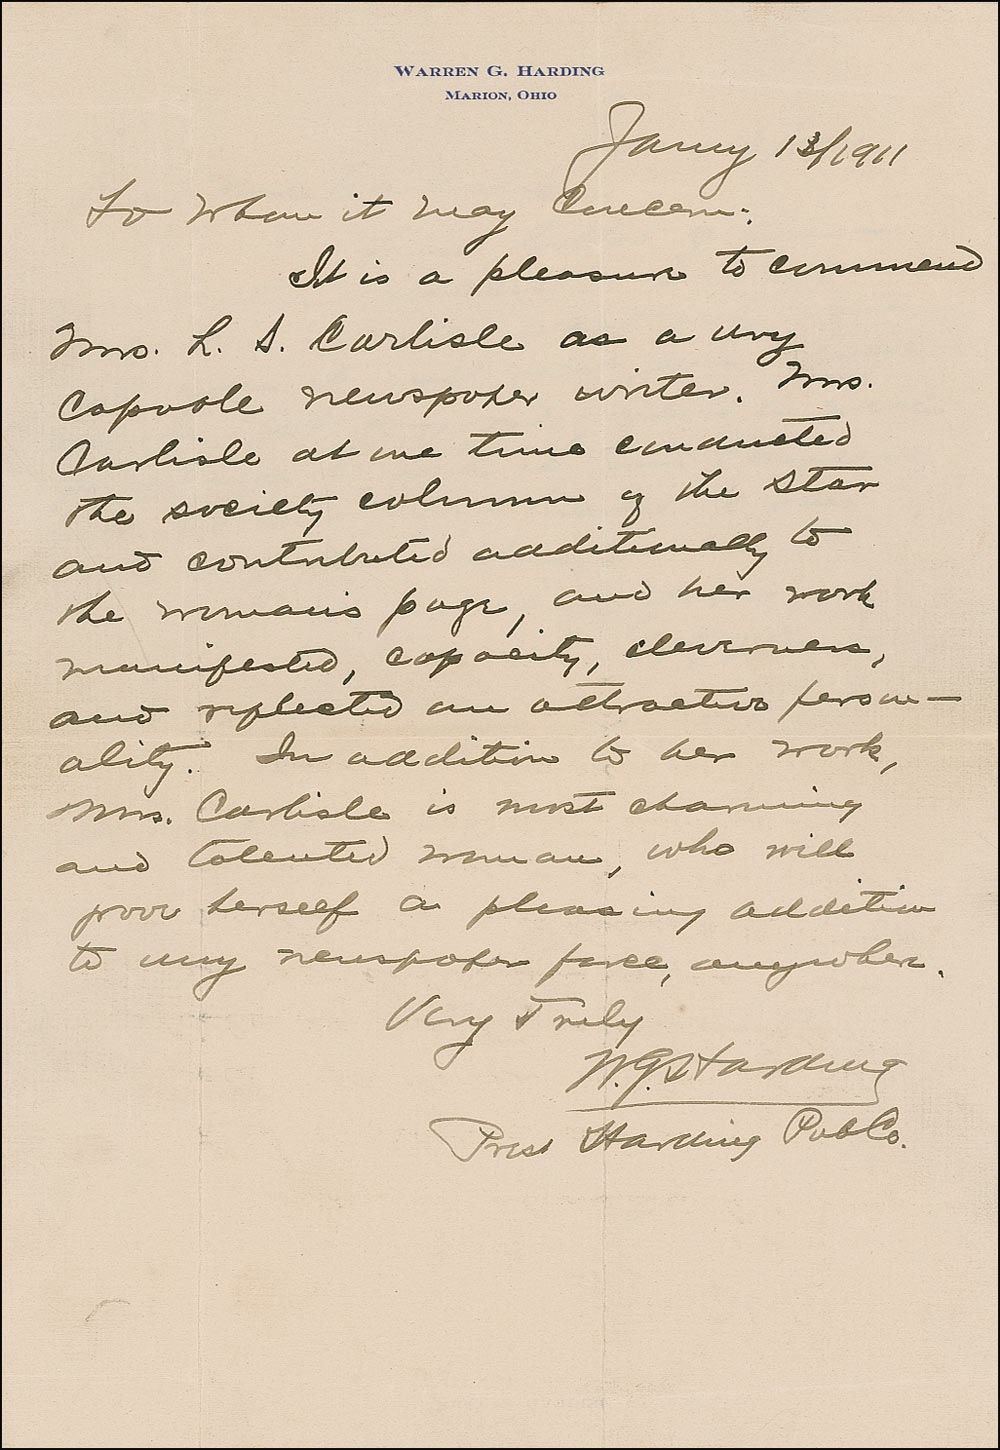 WARREN G. HARDING
MARION, OHIO
Janry 13/1911
To Whom it may Concern:
It is a pleasure to commend
Mrs. L. S. Carlisle as a very
capable newspaper writer. Mrs.
Carlisle at one time conducted
the society column of the Star
and contributed additionally to
the woman's page, and her work
manifested, capacity, cleverness,
and reflected an attractive person-
ality. In addition to her work,
Mrs. Carlisle is most charming
and talented woman, who will
prove herself a pleasing addition
to any newspaper force, anywhere.
Very Truly
W.G. Harding
Prest Harding Pub Co.